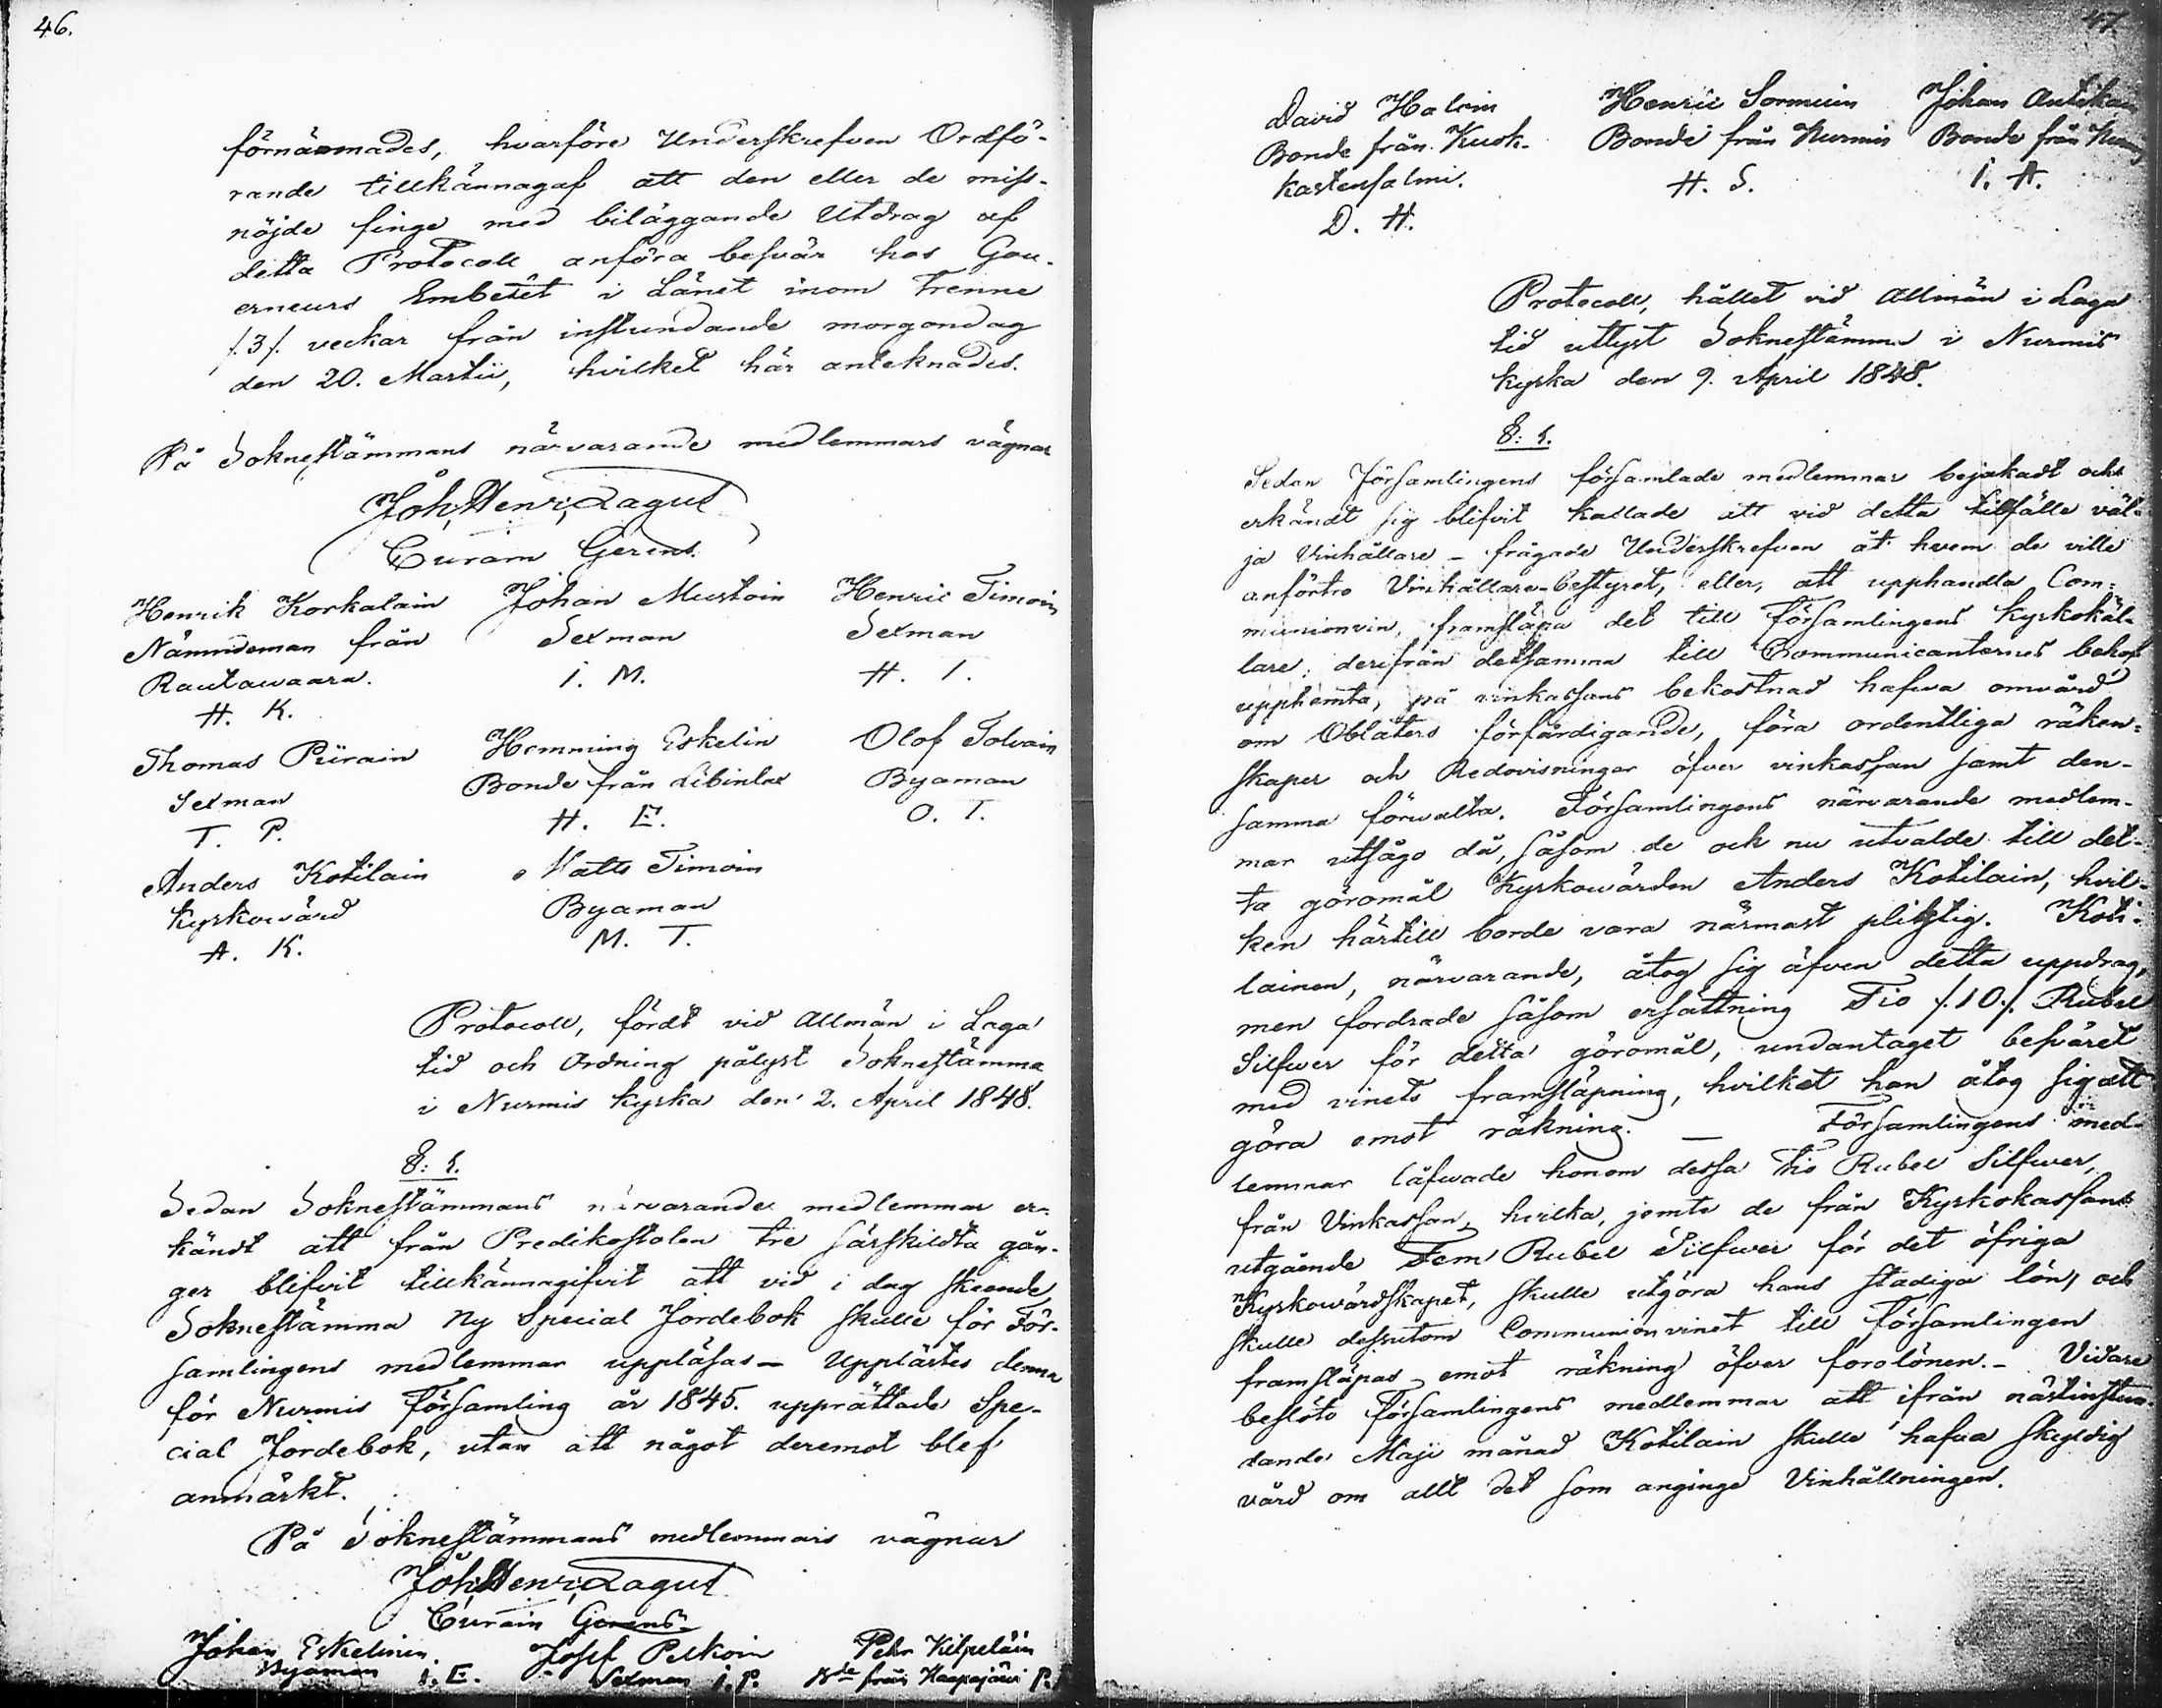 46.
förnämmades, hvarföre Underskrefven Ordfö-
rande tillkännagaf att den eller de miss-
nöjde finge med biläggande Utdrag af
detta Protocoll anföra besvär hos Gou-
erneurs Embetet i Länet inom Trenne
/.3/. veckar från instundande morgondag
den 20. Martii, hvilket här anteknades.
På Soknestämmans närvarande medlemmars vägnar
Joh. Henr. Lagus
Curam Gerens.
Henrik Korkalain Johan Mustoin Henric Timoin
Nämndeman från Sexman Sexman
Rautawaara. I. M. H. T.
H. K.
Thomas Piirain Hemming Eskelin Olof Tolvain
Sexman Bonde från Libinlax Byaman
T. P. H. E. O. T.
Anders Kotilain Matts Timoin
Kyrkowärd Byaman
A. K. M. T.
Protocoll, fördt vid Allmän i Laga
tid och Ordning pålyst Soknestämma
i Nurmis kyrka den 2. April 1848.
§: 1.
Sedan Soknestämmans närvarande medlemmar er-
kändt att från Predikostolen tre särskildta gån-
ger blifvit tillkännagifvit att vid i dag skeende
Soknestämma Ny Special Jordebok skulle för För-
samlingens medlemmar uppläsas – Upplästes denna
för Nurmis Församling år 1845. upprättade Spe-
cial Jordebok, utan att något deremot blef
anmärkt.
På Soknestämmans medlemmars vägnar
Joh. Henr. Lagus
Curam Gerens
Johan Eskelinen. Josef Pelkoin Pehr Kilpeläin
Byaman I. E. Sexman I. P. Bde från Haapajärvi P.
47
David Haloin Henric Sormuin Johan Antikain
Bonde från Kuok- Bonde från Nurmis Bonde från
kastensalmi. H. S. I. A.
D. H.
Protocoll, hållet vid Allmän i Laga
tid utlyst Soknestämma i Nurmis
kyrka den 9. April 1848.
§: 1.
Sedan Församlingens församlade medlemmar bejakadt och
erkändt sig blifvit kallade att vid detta tillfälle väl-
ja Vinhållare – frågade Underskrefven åt hvem de ville
anförtro Vinhållare-bestyret, eller, att upphandla Com-
munionvin, framsläpa det till Församlingens kyrkokäl-
lare, derifrån detsamma till Communicanternes behof
upphemta, på vinkassans bekostnad hafwa omvård
om Oblaters förfärdigande, föra ordentliga räken-
skaper och Redovisningar öfver vinkassan samt den-
samma förvalta. Församlingens närvarande medlem-
mar utsågo då, såsom de och nu utvalde till det-
ta göromål Kyrkowärden Anders Kotilain, hvil-
ken härtill borde vara närmast pligtig. Koti-
lainen, närvarande, åtog sig äfven detta uppdrag,
men fordrade såsom ersättning Tio /.10./. Rubel
Silfwer för detta göromål, undantaget besväret
med vinets framsläpning, hvilket han åtog sig att
göra emot räkning. – Församlingens med-
lemmar låfwade honom dessa Tio Rubel Silfwer,
från Vinkassan, hvilka, jemte de från Kyrkokassans
utgående Fem Rubel Silfwer för det öfriga
Kyrkowärdskapet, skulle utgöra hans stadiga lön, och
skulle dessutom Communionvinet till Församlingen
framsläpas emot räkning öfver forolönen. – Vidare
beslöto Församlingens medlemmar att ifrån nästinstun-
dande Maji månad Kotilain skulle hafva skyldig
vård om allt det som anginge Vinhållningen.